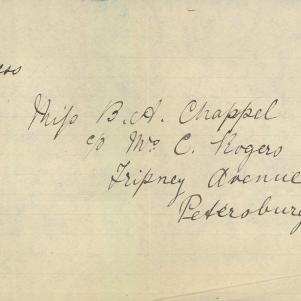 Miss B. A. Chappel
c/o Mrs C. Rogers
Tripney Avenue
Petersburg